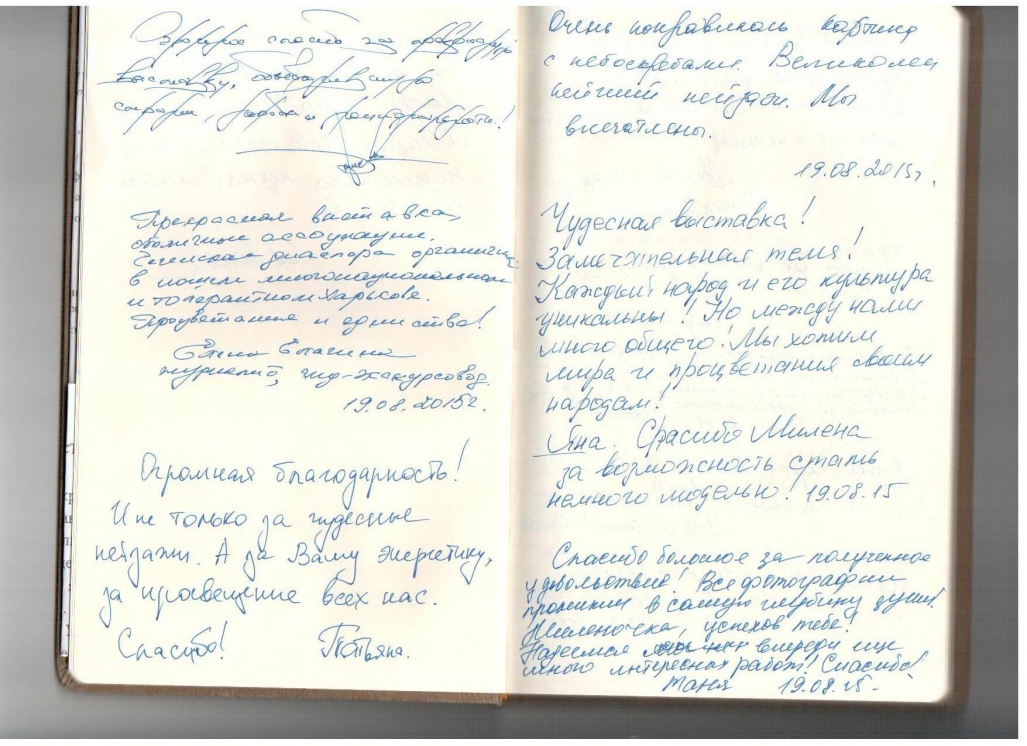 Огромное спасибо за
выставку,
Прекрасная выставка,
отличные ассоциации.
диаспора органична
в нашем многонациональном
и толерантном Харькове.
Процветания и единства!
Елена
журналист, гид-экскурсовод.
19.08.2015г.
Огромная благодарность!
И не только за чудесные
пейзажи. А за Вашу энергетику,
за просвещение всех нас.
Спасибо! Татьяна.
Очень понравилась картина
с небоскребами. Великолеп
нейший пейзаж. Мы
впечатлены.
19.08.2015г.
Чудесная выставка!
Замечательная тема!
Каждый народ и его культура
уникальны! Но между нами
много общего! Мы хотим
мира и процветания своим
народам!
Яна. Спасибо Милена
за возможность стать
немного моделью! 19.08.15
Спасибо большое за полученное
удовольствие! Все фотографии
проникли в самую глубину души!
Миленочка, успехов тебе!
Надеемся впереди еще
много интересных работ! Спасибо!
Таня 19.08.15.